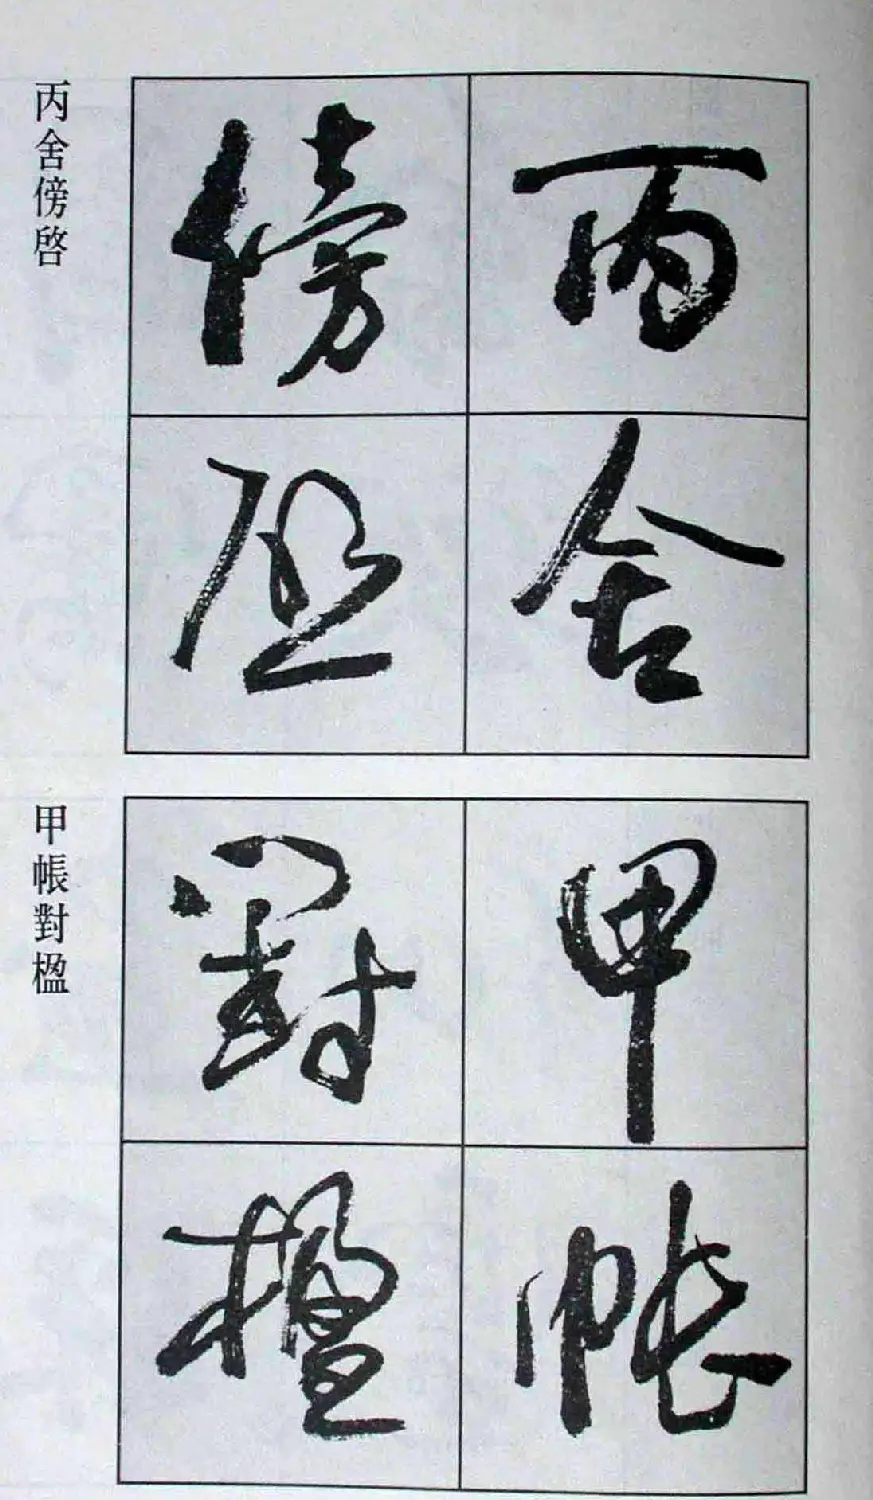 丙舍傍啓
丙舍
傍啓
甲帳對楹
甲帳
對楹